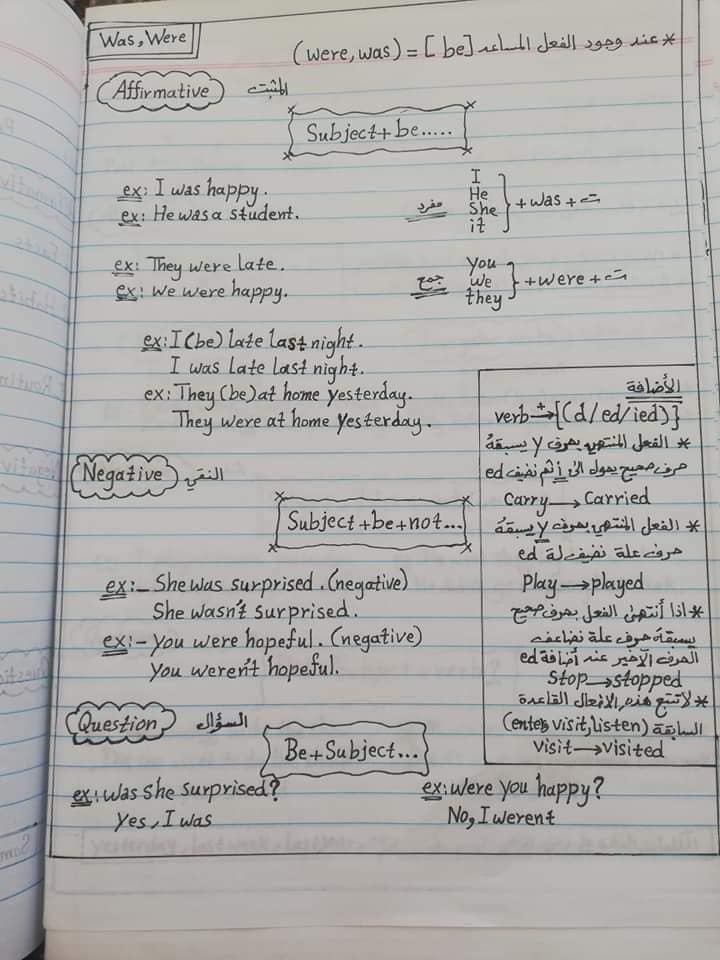 Was, Were
*عند وجود الفعل المساعد [be] = (were, was)
Affirmative المثبت
Subject + be.....
ex: I was happy.
ex: He was a student.
مفرد
I
He
She
it
+ was + ت
ex: They were late.
ex: We were happy.
جمع
You
we
they
+ were + ت
ex: I (be) late last night.
I was late last night.
ex: They (be) at home yesterday.
They were at home yesterday.
Negative النفي
Subject + be + not...
ex:- She was surprised. (negative)
She wasn't surprised.
ex:- You were hopeful. (negative)
You weren't hopeful.
Question السؤال
Be + Subject...
ex: Was she surprised?
Yes, I was
ex: Were you happy?
No, I werent
الأضافة
verb + → [(d/ed/ied)}
* الفعل المنتهي بحرف y يسبقهُ
حرف صحيح يحول الى i ثم نضيف ed
Carry → Carried
* الفعل المنتهي بحرف y يسبقهُ
حرف علة نضيف لهُ ed
Play → played
* اذا أنتهى الفعل بحرف صحيح
يسبقهُ حرف علة نضاعف
الحرف الآخير عند أضافة ed
Stop → stopped
* لاتتبع هذه الافعال القاعدة
السابقة (enter, visit, listen)
Visit → visited